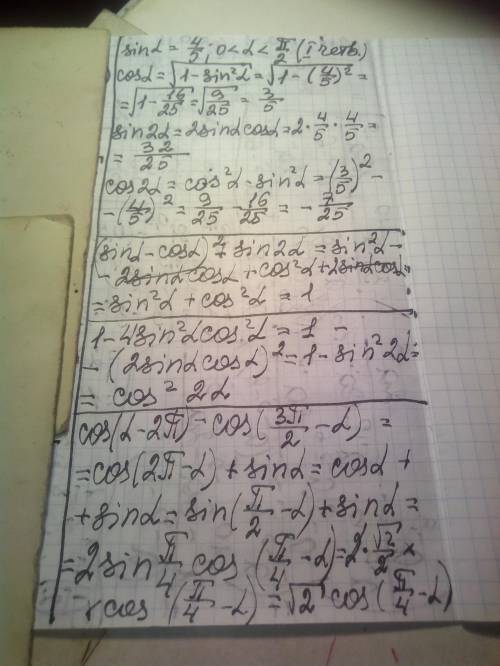 sinα = 4/5; 0 < α < π/2 (I четв.)
cosα = √(1 - sin²α) = √(1 - (4/5)²) =
= √(1 - 16/25) = √(9/25) = 3/5
sin2α = 2sinαcosα = 2 · 4/5 · 4/5 =
= 32/25
cos2α = cos²α - sin²α = (3/5)² -
- (4/5)² = 9/25 - 16/25 = - 7/25
(sinα - cosα)² + sin2α = sin²α -
- 2sinαcosα + cos²α + 2sinαcosα
= sin²α + cos²α = 1
1 - 4sin²αcos²α = 1 -
- (2sinαcosα)² = 1 - sin²2α =
= cos² 2α
cos(α - 2π) - cos(3π/2 - α) =
= cos(2π - α) + sinα = cosα +
+ sinα = sin(π/2 - α) + sinα =
= 2sin π/4 cos (π/4 - α) = 2 · √2/2 ×
× cos (π/4 - α) = √2 cos(π/4 - α)